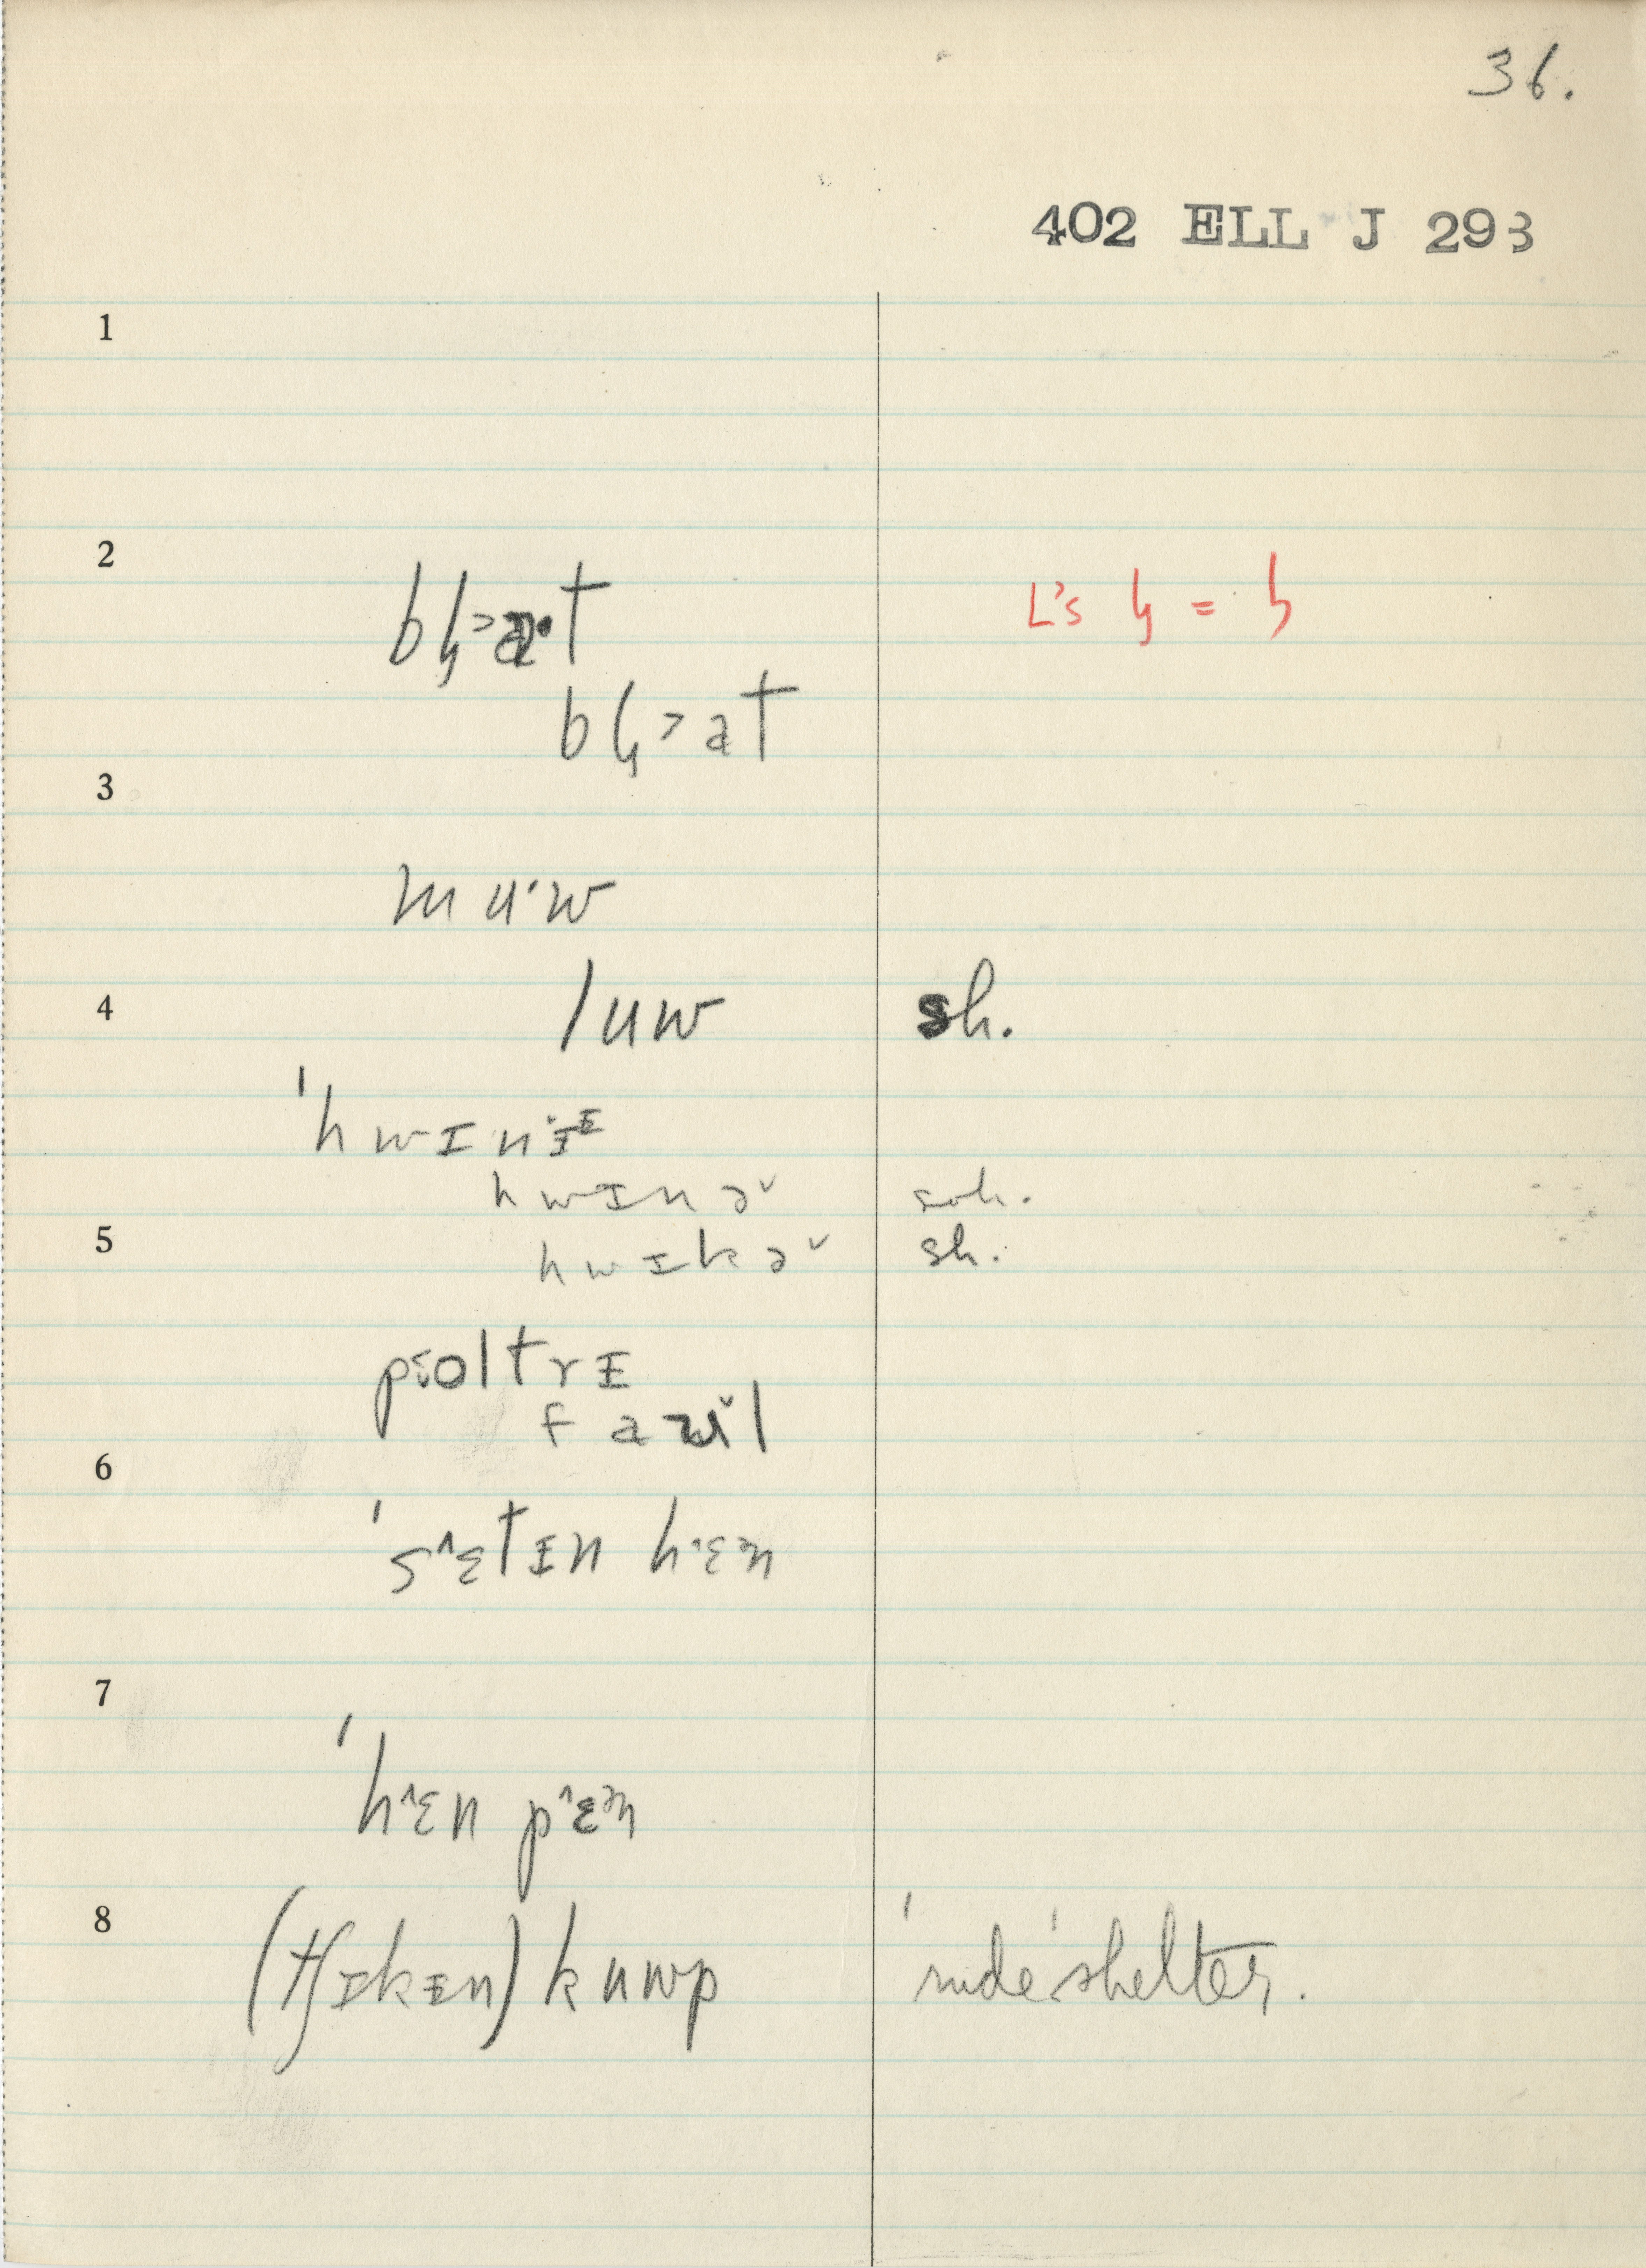 36.
402 ELL J 293
1
2
bɧ>a·t
L's ɧ = ɦ
bɧ>at
3
mʉ·w
4
lʉw sh.
ˈhwɪnɪ
hwɪnə˅ soh.
5
hwɪkə˅ sh.
poltrɪ
faʉ˅l
6
ˈs^ɛtɪn hɛn
7
ˈh^ɛn p^ɛn
8
(tʃɪkɪn) kuwp ˈrude ˈshelter.